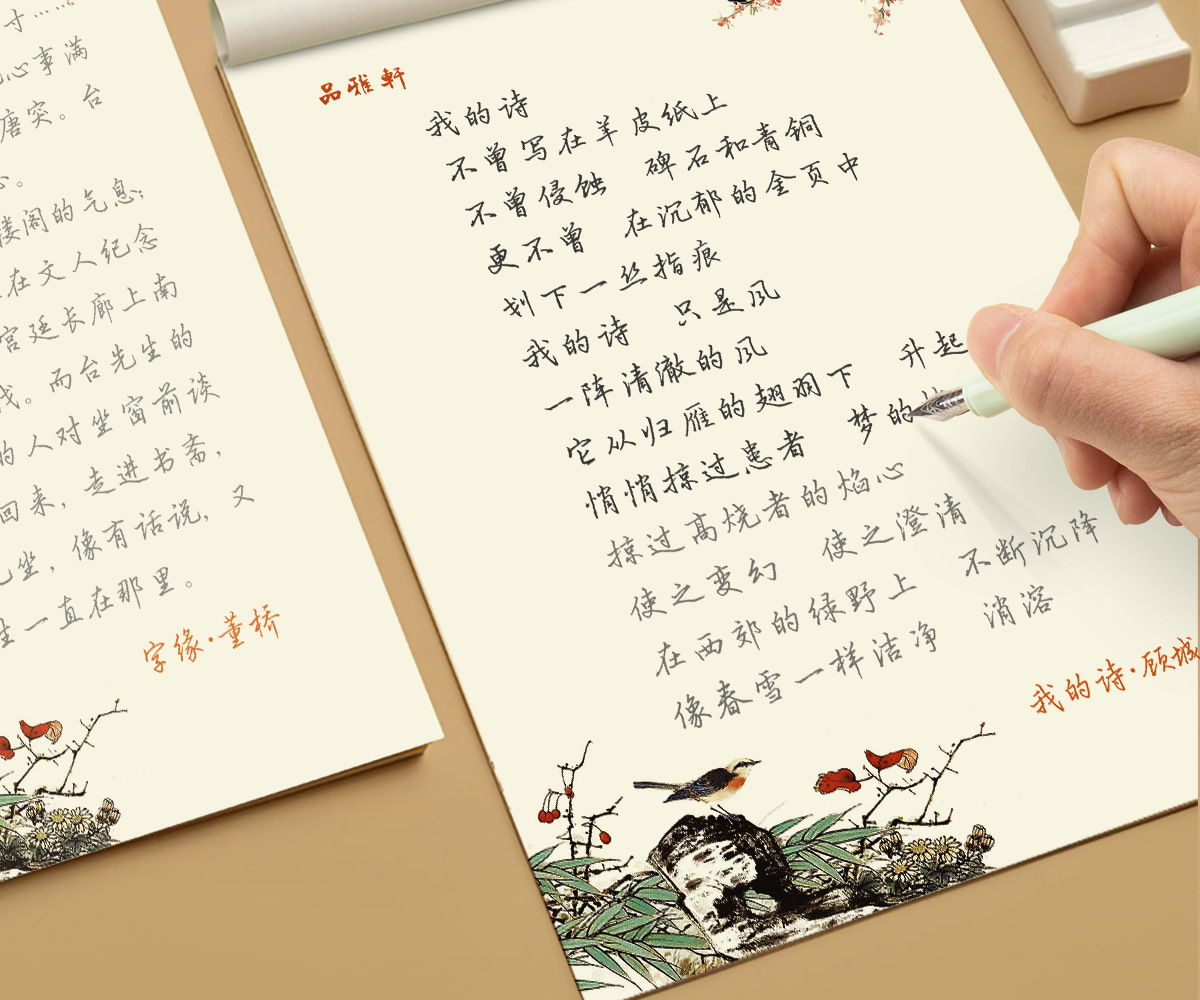 寸……
心事满
唐突。台
心。
楼阁的气息；
在文人纪念
宫廷长廊上南
我。而台先生的
的人对坐窗前谈
回来，走进书斋，
坐，像有话说，又
生一直在那里。
字缘·董桥
品雅軒
我的诗
不曾写在羊皮纸上
不曾侵蚀 碑石和青铜
更不曾 在沉郁的金页中
划下一丝指痕
我的诗 只是风
一阵清澈的风
它从归雁的翅羽下 升起
悄悄掠过患者 梦的
掠过高烧者的焰心
使之变幻 使之澄清
在西郊的绿野上 不断沉降
像春雪一样洁净 消溶
我的诗·顾城